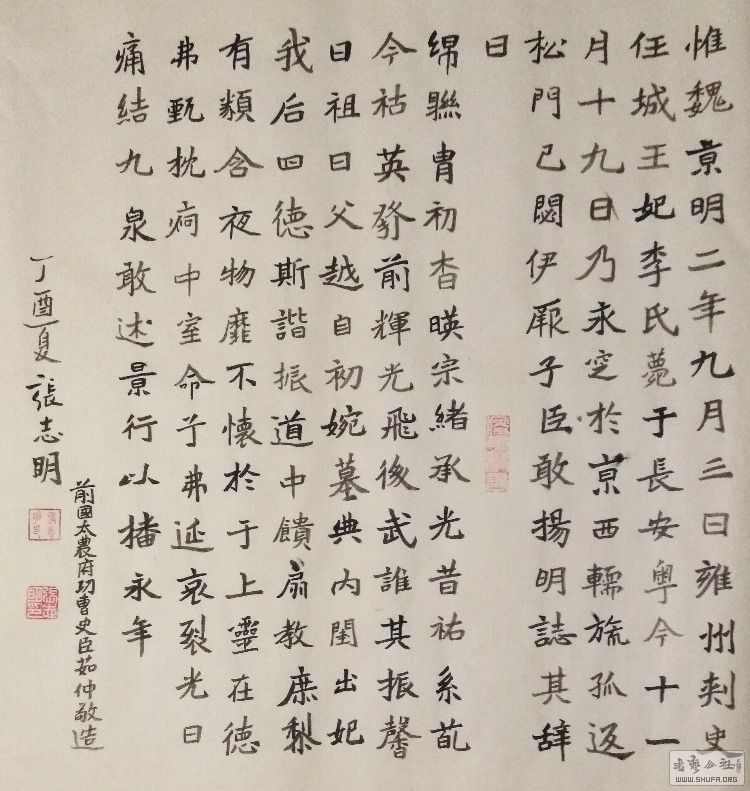 惟魏京明二年九月三日雍州刾史
任城王妃李氏薨于長安粤今十一
月十九日乃永空於京西輀旒孤返
松門已閟伊厥子臣敢揚明誌其辞
曰
綿聮胄初杳暎宗緒承光昔祐系
今祜英發前輝光飛後武誰其振馨
曰祖曰父越自初婉墓典内閨出妃
我后曰德斯諧振道中饋扇教庶
有類含夜物靡不懷於于上靈在德
弗甄枕痾中室命予弗延哀裂光日
痛結九泉敢述景行以播永年
丁酉夏張志明
前國太農府功曹史臣茹仲敬造
WWW.SHUFA.ORG